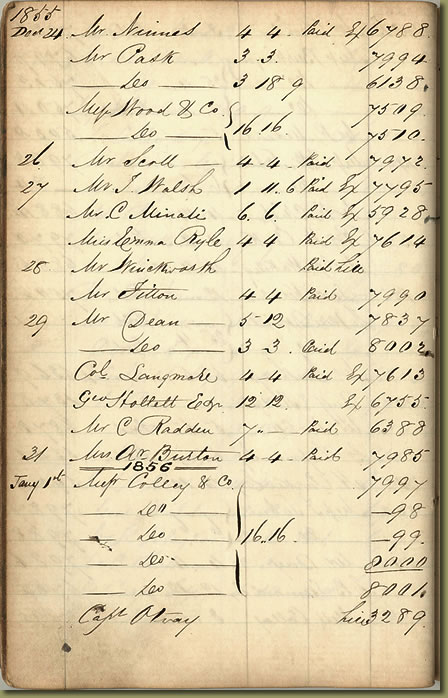 1855
Decr 24 Mr Nimmes 4 4 Paid Ex 6788
Mr Pask 3 . 3 . 7994
— Do — 3 18 9 6138.
Mess Wood & Co. 7509
— Do — 16 16. 7510
26 Mr Scott — 4 . 4 . Paid 7972
27 Mr J. Walsh 1 11 . 6 Paid Ex 7795
Mr C Minati 6 . 6 . Paid Ex 5928
Miss Emma Ryle 4 4 Paid Ex 7614
28 Mr Winckworth Paid
Mr Titton 4 4 Paid 7990
29 Mr Dean — 5 . 12 7837
— Do — 3 . 3 . Paid 8002
Col. Langmore 4 . 4 Paid Ex 7613
Geo Esqr 12 12. Ex 6755
Mr C Radden 7 „ — Paid 6388
31 Mrs Burton 4 . 4 Paid 7985
1856
Jany 1st Mess Colley & Co. 7997
— Do — — 98
— Do — 16 . 16 . — 99.
— Do — 8000
— Do — 8001
Capt Otway 3289.